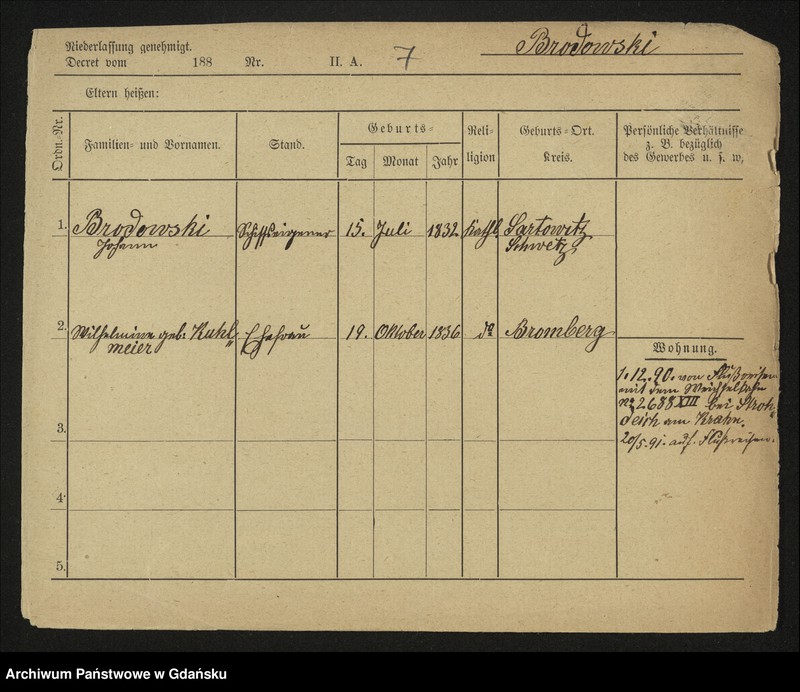 Niederlassung genehmigt.
Decret vom 188 Nr. II. A. 7
Brodowski
Eltern heißen:
Ordn.-Nr.
Familien- und Vornamen.
Stand.
Geburts-
Tag
Monat
Jahr
Reli-
ligion
Geburts-Ort.
Kreis.
Persönliche Verhältnisse
z. B. bezüglich
des Gewerbes u. s. w.
1. Brodowski Schiffseigener 15. Juli 1832 kathl. Sartowitz
Johann Schwetz
2. Wilhelmine geb: Kuhl„ Ehefrau 19. Oktober 1836 do Bromberg
meier
Wohnung.
1.12.90. von Flußreisen
mit dem Weichselkahn
No 2688 XIII bei Stroh„
deich am Krahn.
20/5.91. auf Flußreisen.
3.
4.
5.
Archiwum Państwowe w Gdańsku